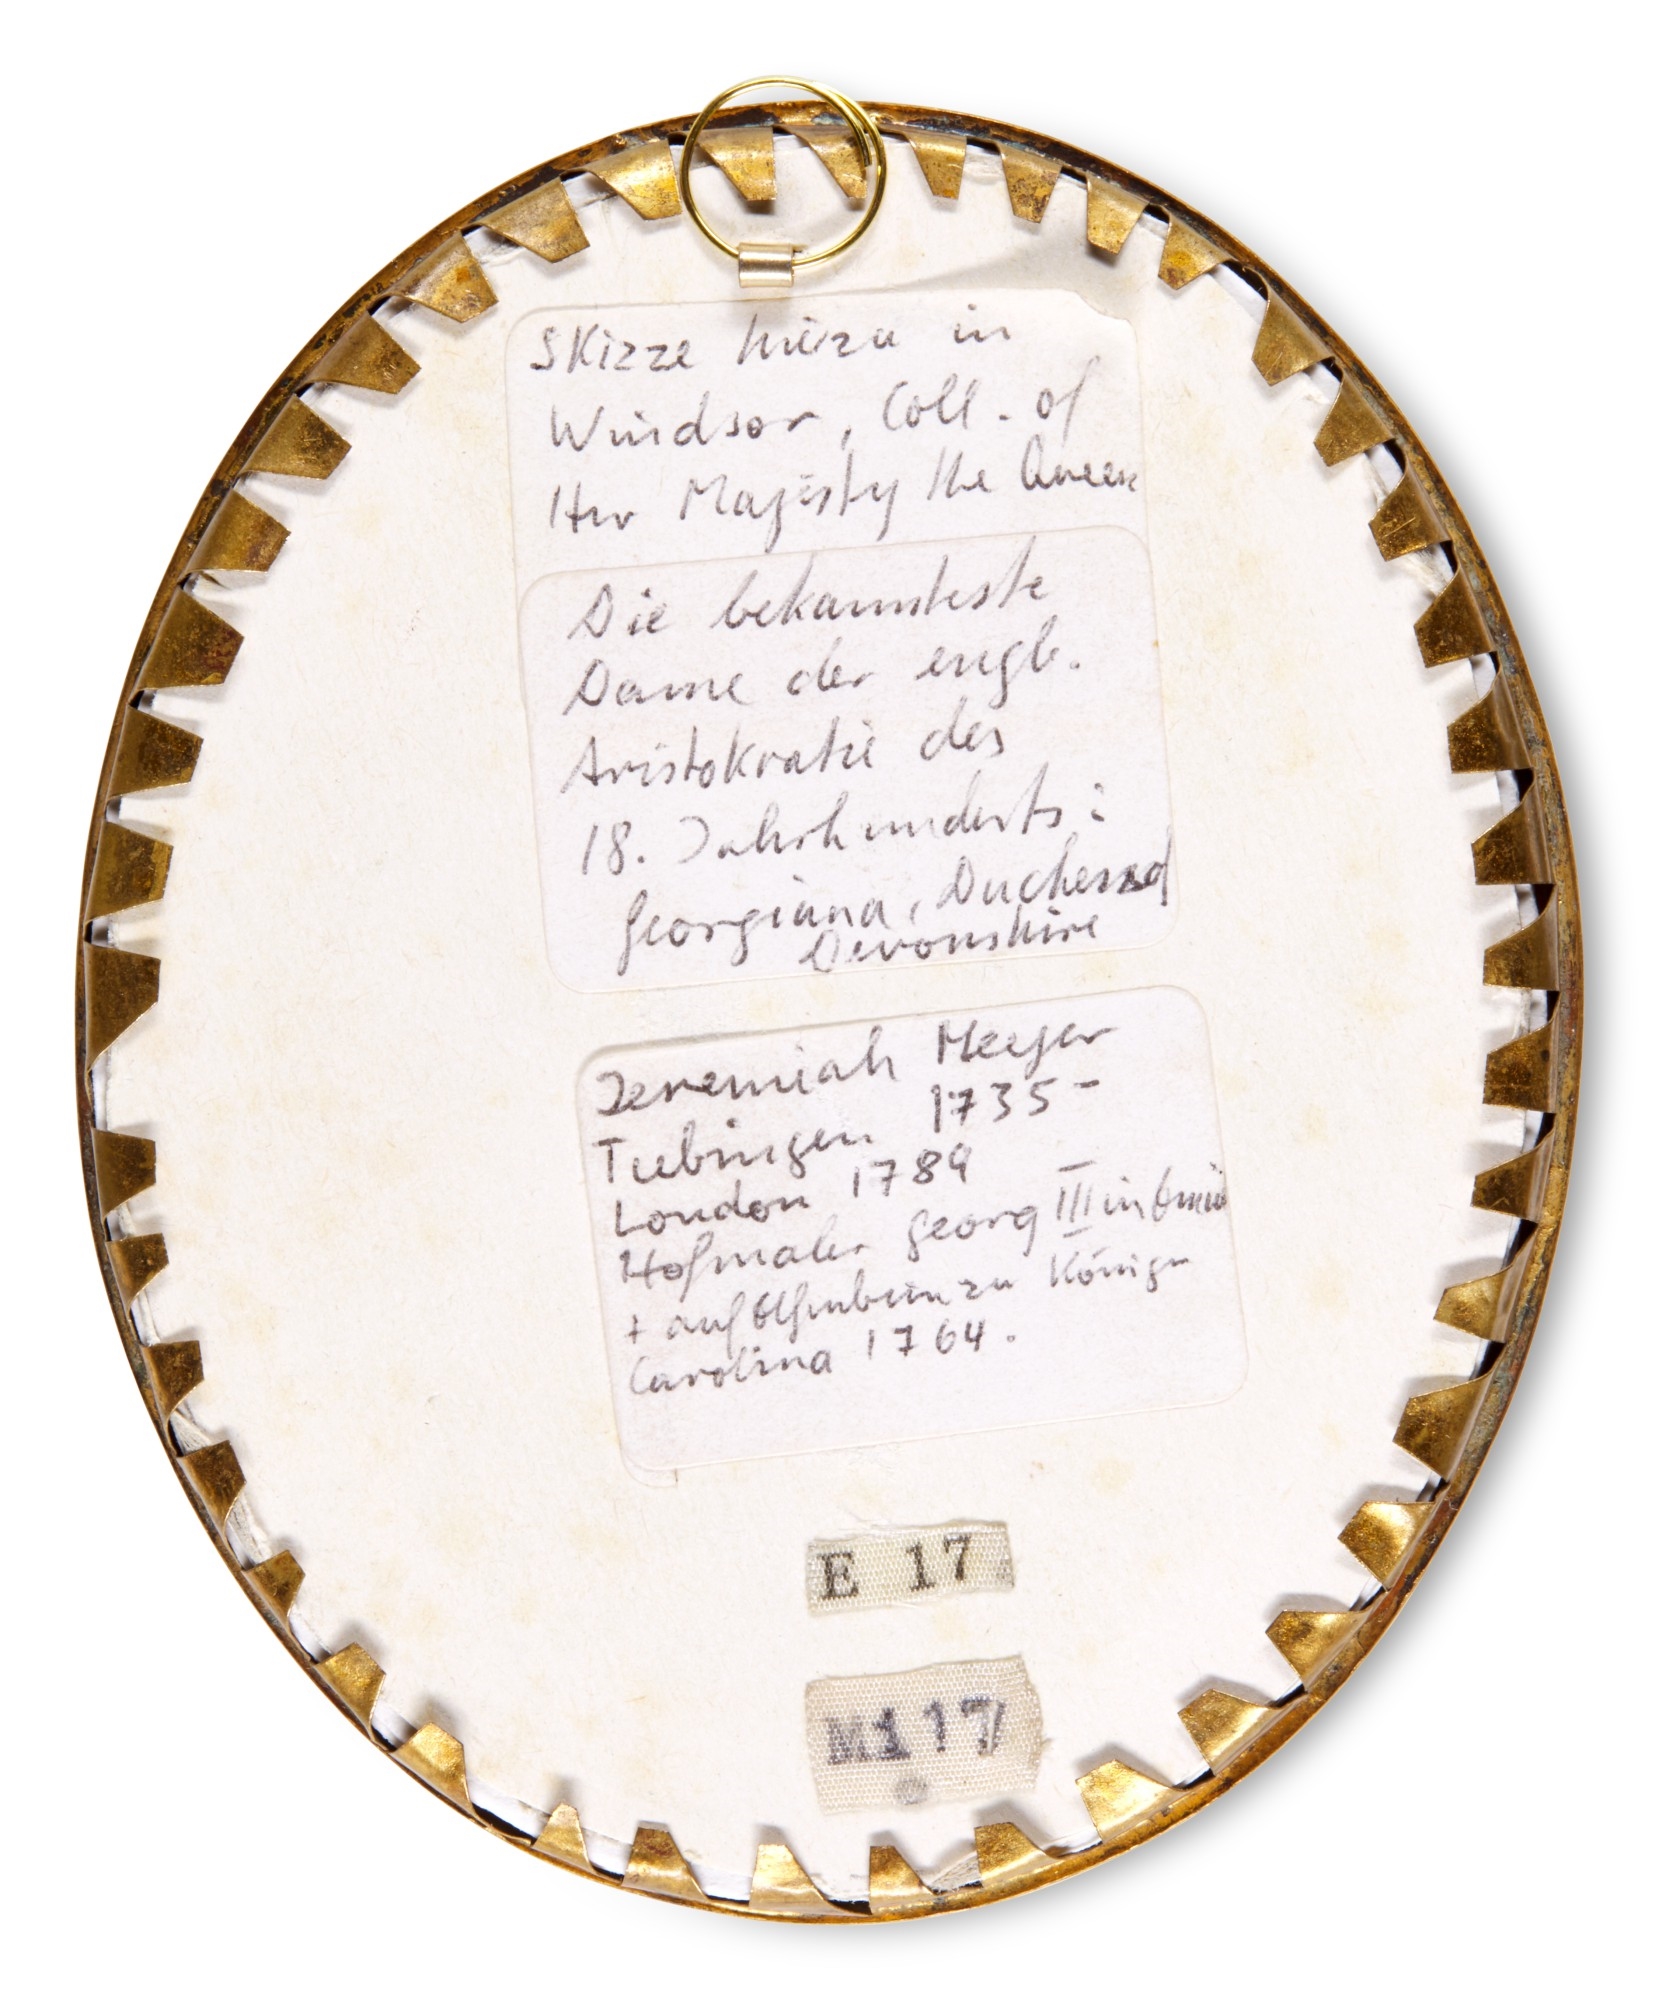 Skizze hiezu in
Windsor, Coll. of
Her Majesty the Queen
Die bekannteste
Dame der engl.
Aristokratie des
18. Jahrhunderts:
Georgiana, Duchess of
Devonshire
Jeremiah Meyer
Tübingen 1735 -
London 1789
Hofmaler Georg III in Email
+ auf Elfenbein zu Königin
Carolina 1764.
E 17
M117